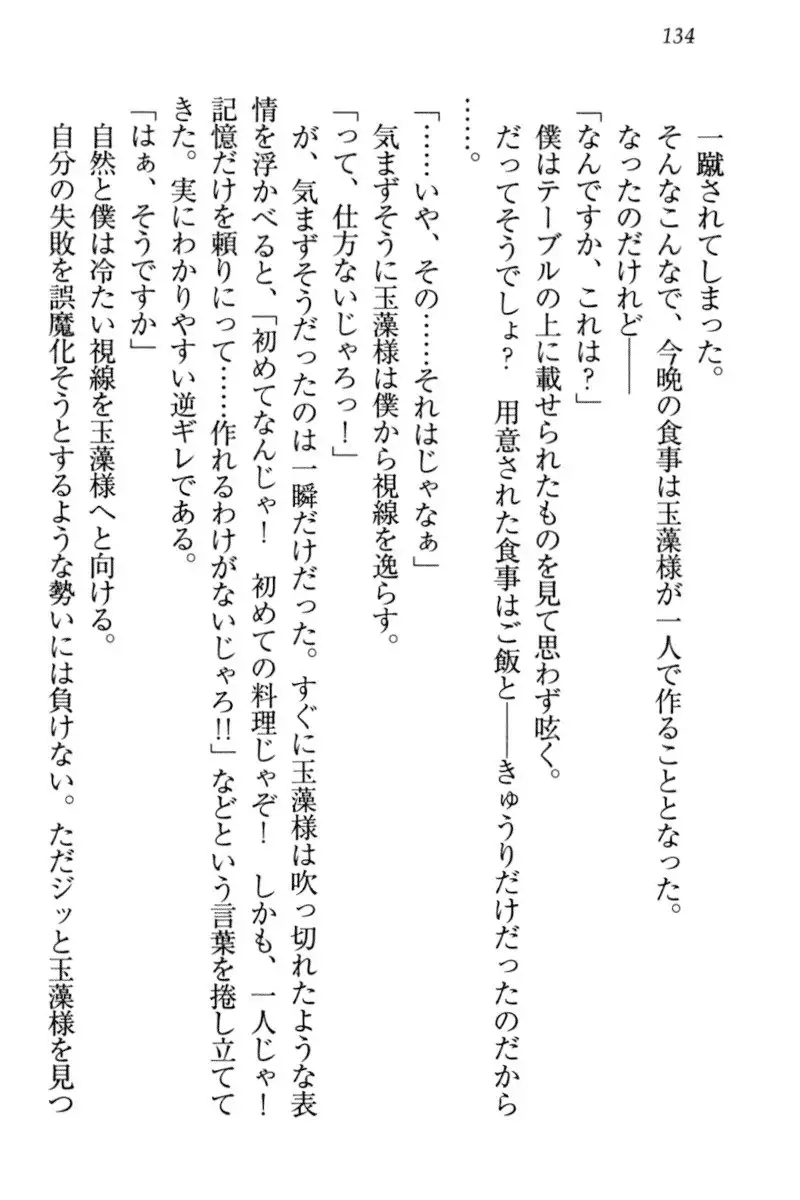 134
一蹴されてしまった。
そんなこんなで、今晩の食事は玉藻様が一人で作ることとなった。
なったのだけれど――
「なんですか、これは?」
僕はテーブルの上に載せられたものを見て思わず呟く。
だってそうでしょ? 用意された食事はご飯と――きゅうりだけだったのだから
……。
「……いや、その……それはじゃなぁ」
気まずそうに玉藻様は僕から視線を逸らす。
「って、仕方ないじゃろっ!」
が、気まずそうだったのは一瞬だけだった。すぐに玉藻様は吹っ切れたような表
情を浮かべると、「初めてなんじゃ! 初めての料理じゃぞ! しかも、一人じゃ!
記憶だけを頼りにって……作れるわけがないじゃろ!!」などという言葉を捲し立てて
きた。実にわかりやすい逆ギレである。
「はぁ、そうですか」
自然と僕は冷たい視線を玉藻様へと向ける。
自分の失敗を誤魔化そうとするような勢いには負けない。ただジッと玉藻様を見つ